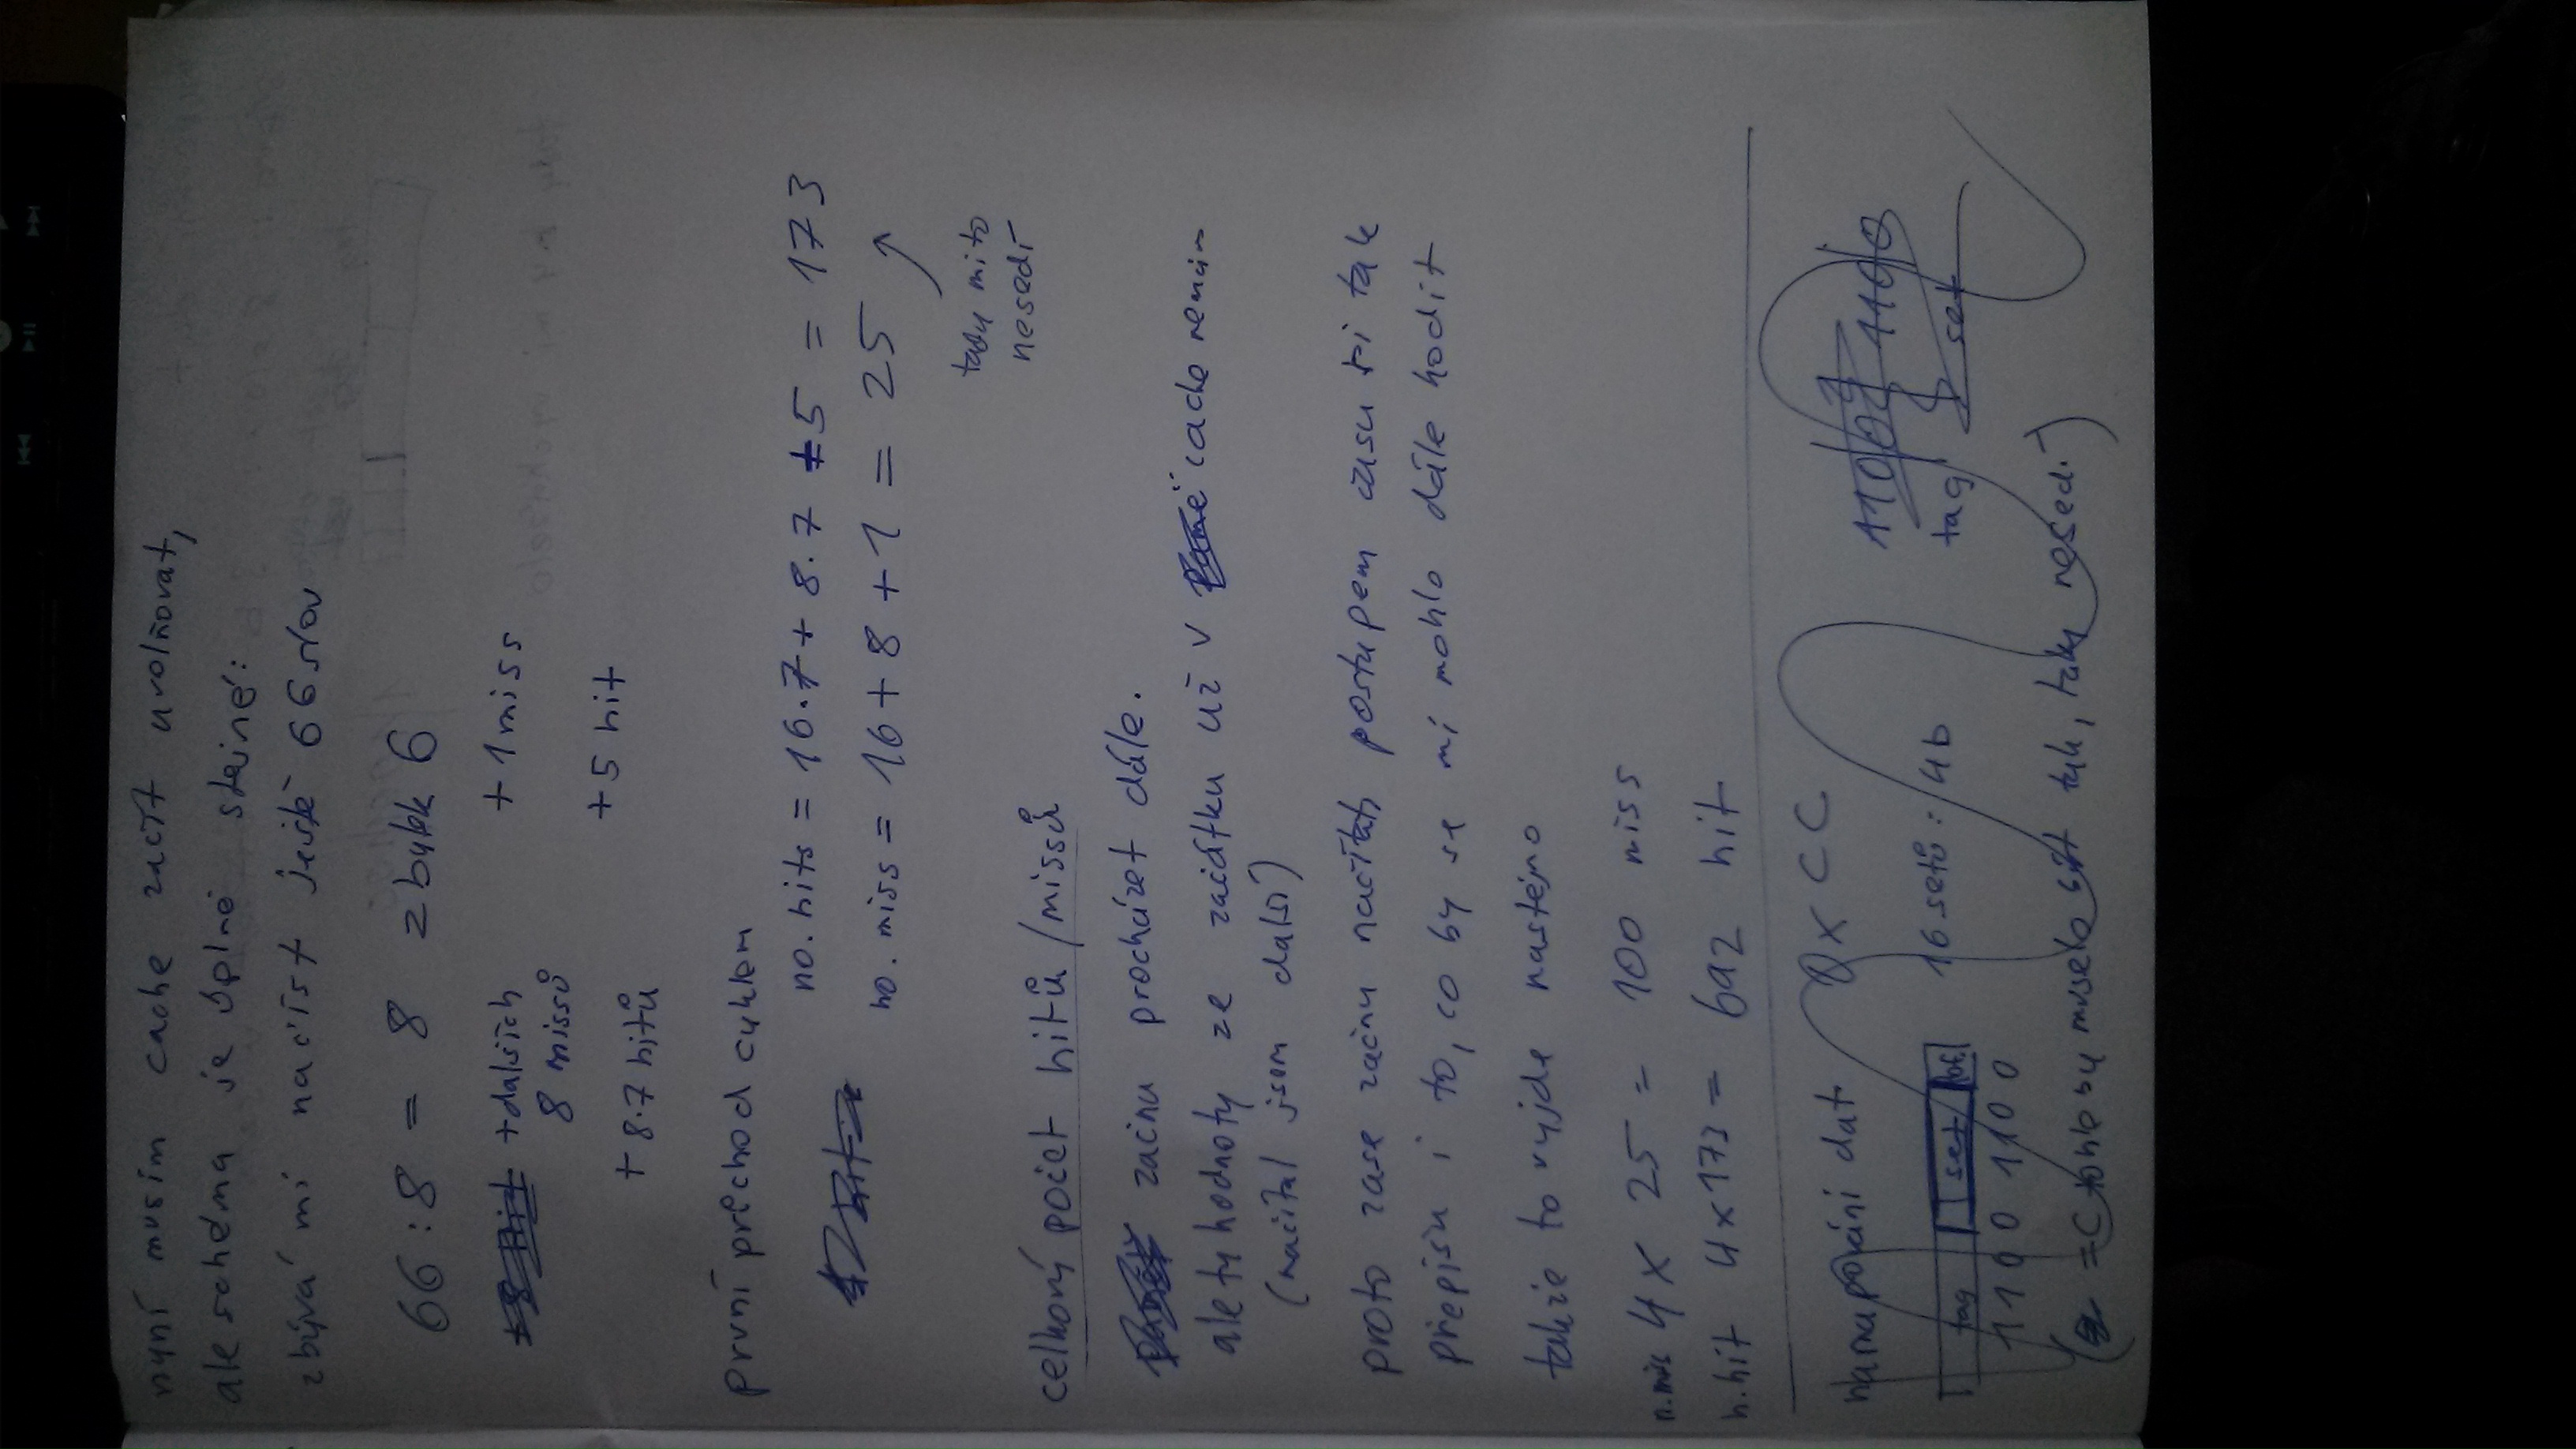 nyní musím cache začít uvolňovat,
ale schéma je úplně stejné:
zbývá mi načíst ještě 66 slov
66 : 8 = 8 zbytek 6
+ dalších 8 missů
+ 1 miss
+ 8.7 hitů
+ 5 hit
první průchod cyklem
no. hits = 16.7 + 8.7 + 5 = 173
no. miss = 16 + 8 + 1 = 25
tady mi to
nesedí
celkový počet hitů/missů
začnu procházet dále.
ale ty hodnoty ze začátku už v cache nemám
(načítal jsem další)
proto zase začnu načítat, postupem času si tak
přepíšu i to, co by se mi mohlo dále hodit
takže to vyjde nastejno
n. miss 4 x 25 = 100 miss
n. hit 4 x 173 = 692 hit
namapování dat 0xCC
tag set of.
16 setů : 4b
1 1 0 0 1 1 0 0
tag set
= (tohle by muselo být tak, taky nesedí)